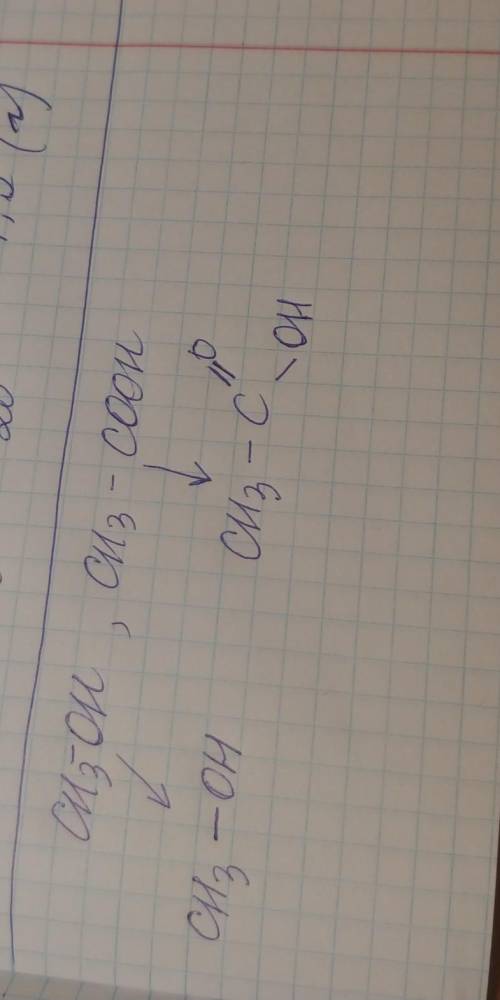 CH3-OH, CH3-COOH
↙ ↓
CH3-OH CH3-C
=O
-OH